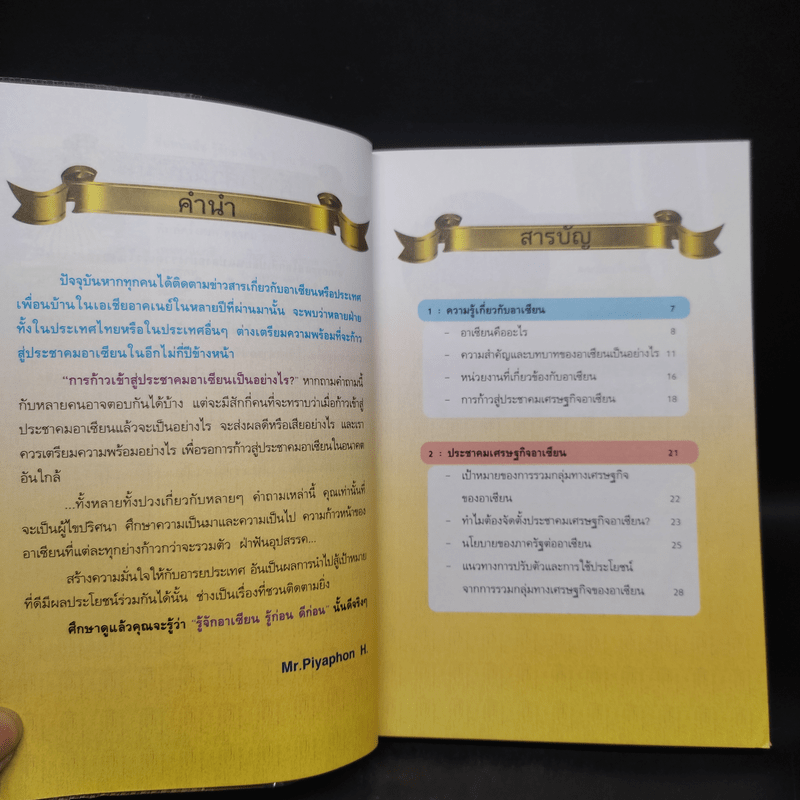 คำนำ
ปัจจุบันหากทุกคนได้ติดตามข่าวสารเกี่ยวกับอาเซียนหรือประเทศ
เพื่อนบ้านในเอเชียอาคเนย์ในหลายปีที่ผ่านมานั้น จะพบว่าหลายฝ่าย
ทั้งในประเทศไทยหรือในประเทศอื่นๆ ต่างเตรียมความพร้อมที่จะก้าว
สู่ประชาคมอาเซียนในอีกไม่กี่ปีข้างหน้า
"การก้าวเข้าสู่ประชาคมอาเซียนเป็นอย่างไร?" หากถามคำถามนี้
กับหลายคนอาจตอบกันได้บ้าง แต่จะมีสักกี่คนที่จะทราบว่าเมื่อก้าวเข้าสู่
ประชาคมอาเซียนแล้วจะเป็นอย่างไร จะส่งผลดีหรือเสียอย่างไร และเรา
ควรเตรียมความพร้อมอย่างไร เพื่อรอการก้าวสู่ประชาคมอาเซียนในอนาคต
อันใกล้
...ทั้งหลายทั้งปวงเกี่ยวกับหลายๆ คำถามเหล่านี้ คุณเท่านั้นที่
จะเป็นผู้ไขปริศนา ศึกษาความเป็นมาและความเป็นไป ความก้าวหน้าของ
อาเซียนที่แต่ละทุกย่างก้าวกว่าจะรวมตัว ฝ่าฟันอุปสรรค...
สร้างความมั่นใจให้กับอารยประเทศ อันเป็นผลการนำไปสู่เป้าหมาย
ที่ดีมีผลประโยชน์ร่วมกันได้นั้น ช่างเป็นเรื่องที่ชวนติดตามยิ่ง
ศึกษาดูแล้วคุณจะรู้ว่า "รู้จักอาเซียน รู้ก่อน ดีก่อน" นั้นดีจริงๆ
Mr.Piyaphon H.
สารบัญ
1 : ความรู้เกี่ยวกับอาเซียน 7
- อาเซียนคืออะไร 8
- ความสำคัญและบทบาทของอาเซียนเป็นอย่างไร 11
- หน่วยงานที่เกี่ยวข้องกับอาเซียน 16
- การก้าวสู่ประชาคมเศรษฐกิจอาเซียน 18
2 : ประชาคมเศรษฐกิจอาเซียน 21
- เป้าหมายของการรวมกลุ่มทางเศรษฐกิจ
ของอาเซียน 22
- ทำไมต้องจัดตั้งประชาคมเศรษฐกิจอาเซียน? 23
- นโยบายของภาครัฐต่ออาเซียน 25
- แนวทางการปรับตัวและการใช้ประโยชน์
จากการรวมกลุ่มทางเศรษฐกิจของอาเซียน 28